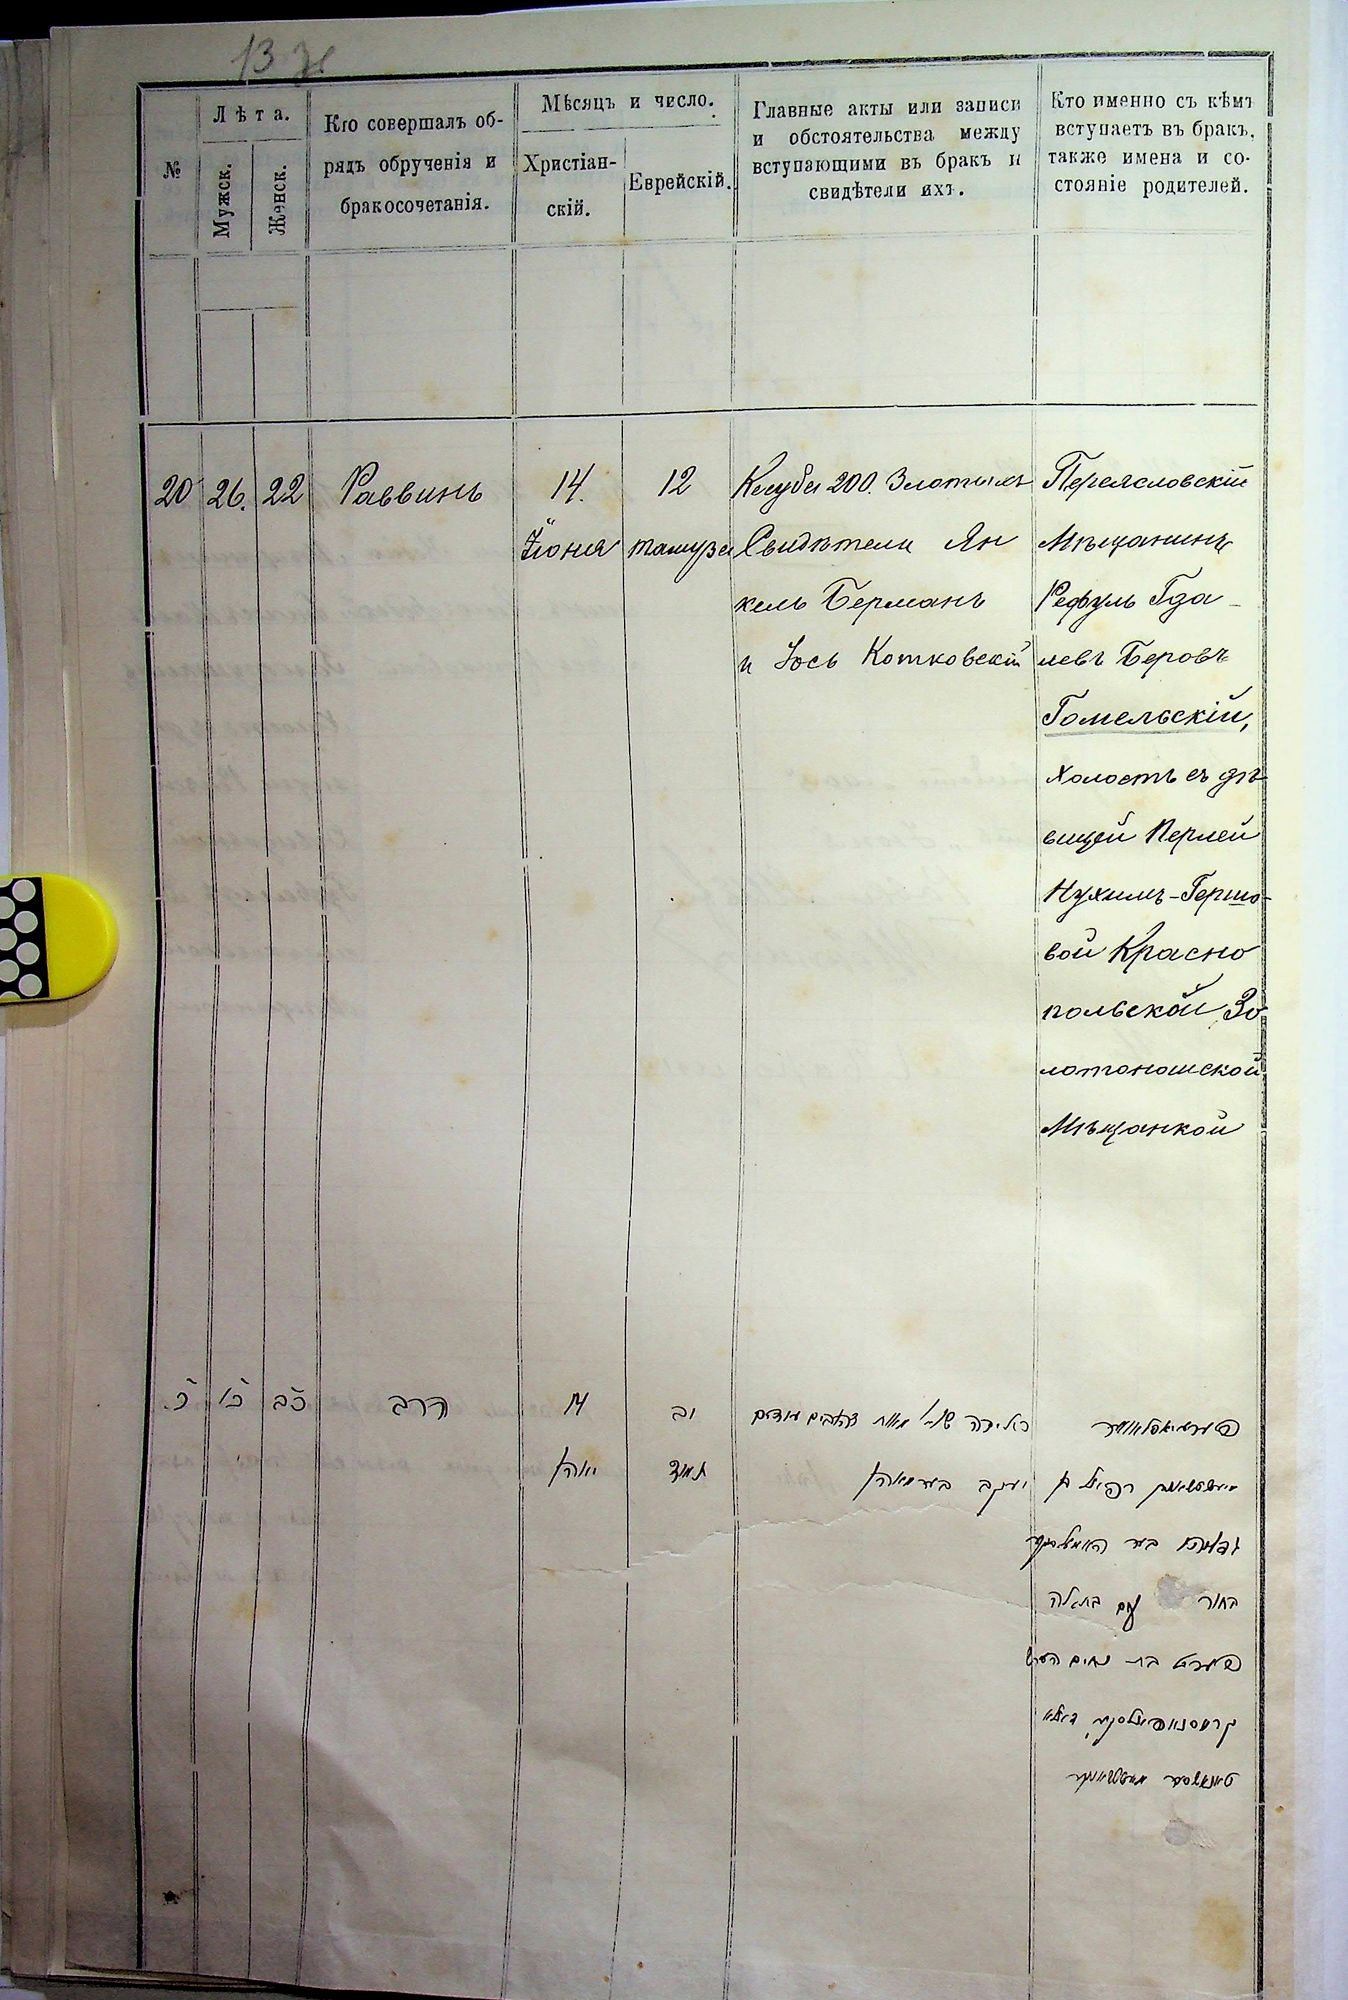 13
№
Лѣта.
Мужск.
Женск.
Кто совершалъ об-
рядъ обрученія и
бракосочетанія.
Мѣсяцъ и число.
Христіан-
скій.
Еврейскій.
Главные акты или записи
и обстоятельства между
вступающими въ бракъ и
свидѣтели ихъ.
Кто именно съ кѣмъ
вступаетъ въ бракъ,
также имена и со-
стояніе родителей.
20
26.
22
Раввинъ
14.
Іюня
12
тамуза
Кетуба 200. Злотыхъ
Свидѣтели Ян
кель Берманъ
и Іось Котковскій
Переясловскій
Мѣщанинъ
Рефуль Гда-
левъ Беровъ
Гомельскій,
холостъ съ дѣ
вицей Перлей
Нухимъ-Гершо-
вой Красно
польской Зо
лотоношской
Мѣщанкой
כ
כו
כב
הרב
14
יוני
יב
תמוז
מאות זהובים עדים
יעקב בערמאן
רפאל בן
בער האמעלסקי
בחור עם בתולה
פערל בת נחום הערש